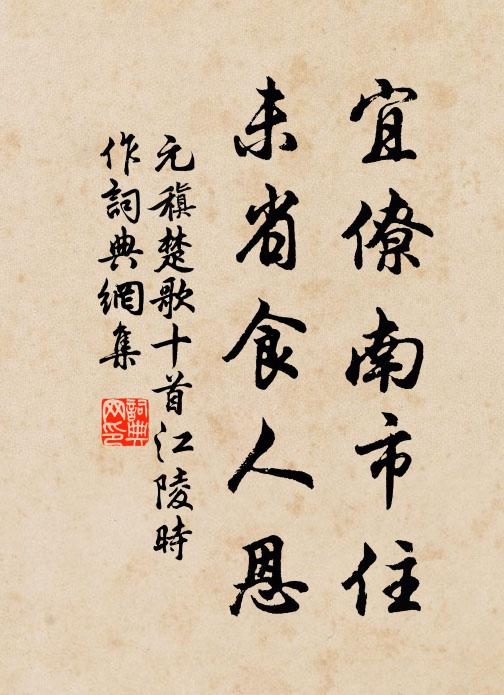 宜僚南市住
未省食人恩
元稹楚歌十首江陵時
作詞典網集
詞典
网印